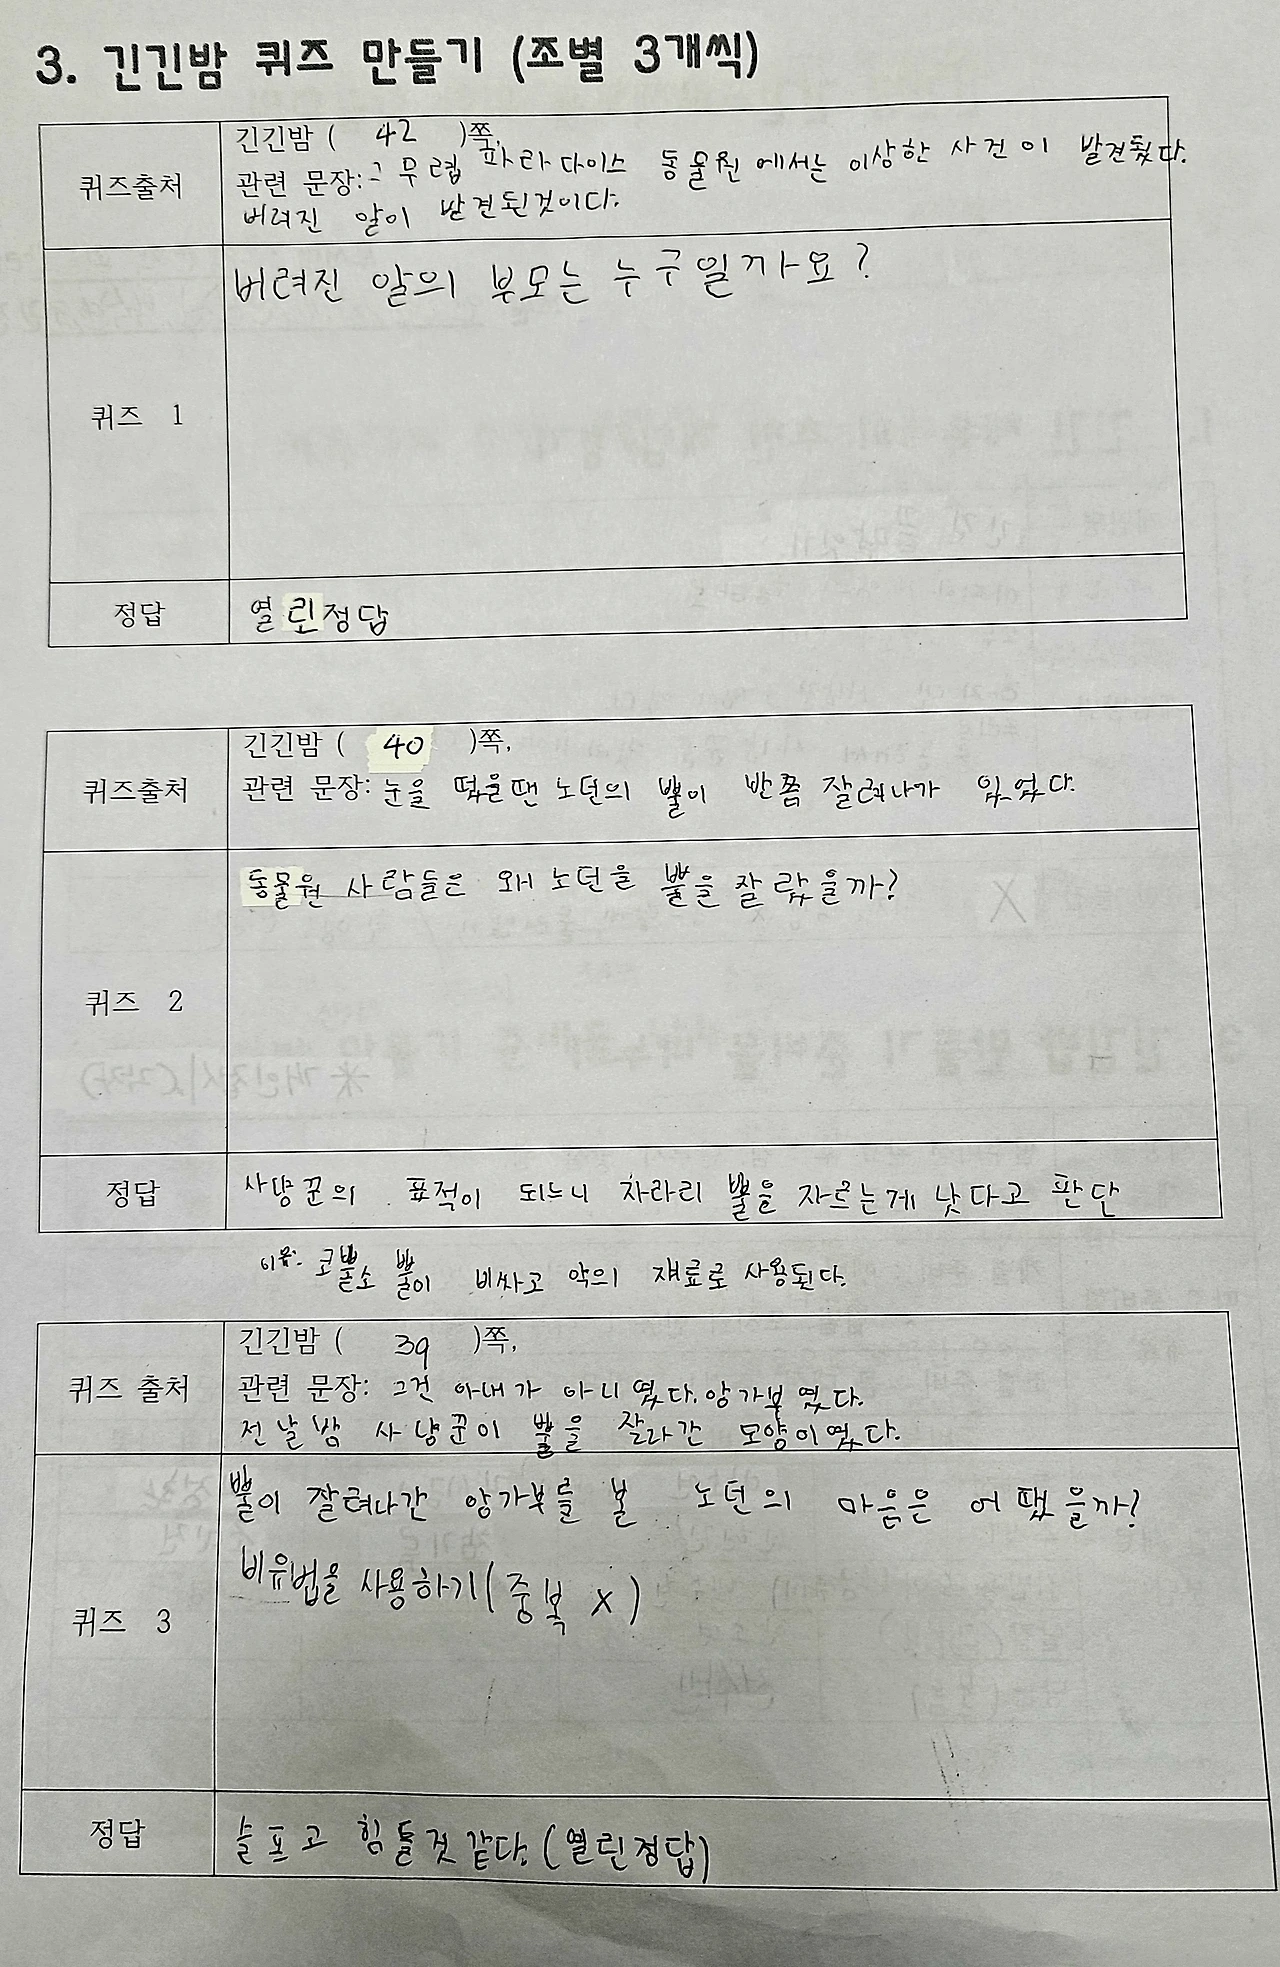 3. 긴긴밤 퀴즈 만들기 (조별 3개씩)
퀴즈출처
긴긴밤 ( 42 )쪽,
관련 문장: 그 무렵 파라다이스 동물원에서는 이상한 사건이 발견됬다.
버려진 알이 발견된것이다.
퀴즈 1
버려진 알의 부모는 누구일까요?
정답
열린정답
퀴즈출처
긴긴밤 ( 40 )쪽,
관련 문장: 눈을 떴을땐 노던의 뿔이 반쯤 잘려나가 있었다.
퀴즈 2
동물원 사람들은 왜 노던을 뿔을 잘랐을까?
정답
사냥꾼의 표적이 되느니 차라리 뿔을 자르는게 낫다고 판단
이유: 코뿔소 뿔이 비싸고 약의 재료로 사용된다.
퀴즈 출처
긴긴밤 ( 39 )쪽,
관련 문장: 그건 아내가 아니였다. 앙가부였다.
전날밤 사냥꾼이 뿔을 잘라간 모양이였다.
퀴즈 3
뿔이 잘려나간 앙가부를 본 노던의 마음은 어땠을까?
비유법을 사용하기(중복 X)
정답
슬프고 힘들것 같다. (열린정답)